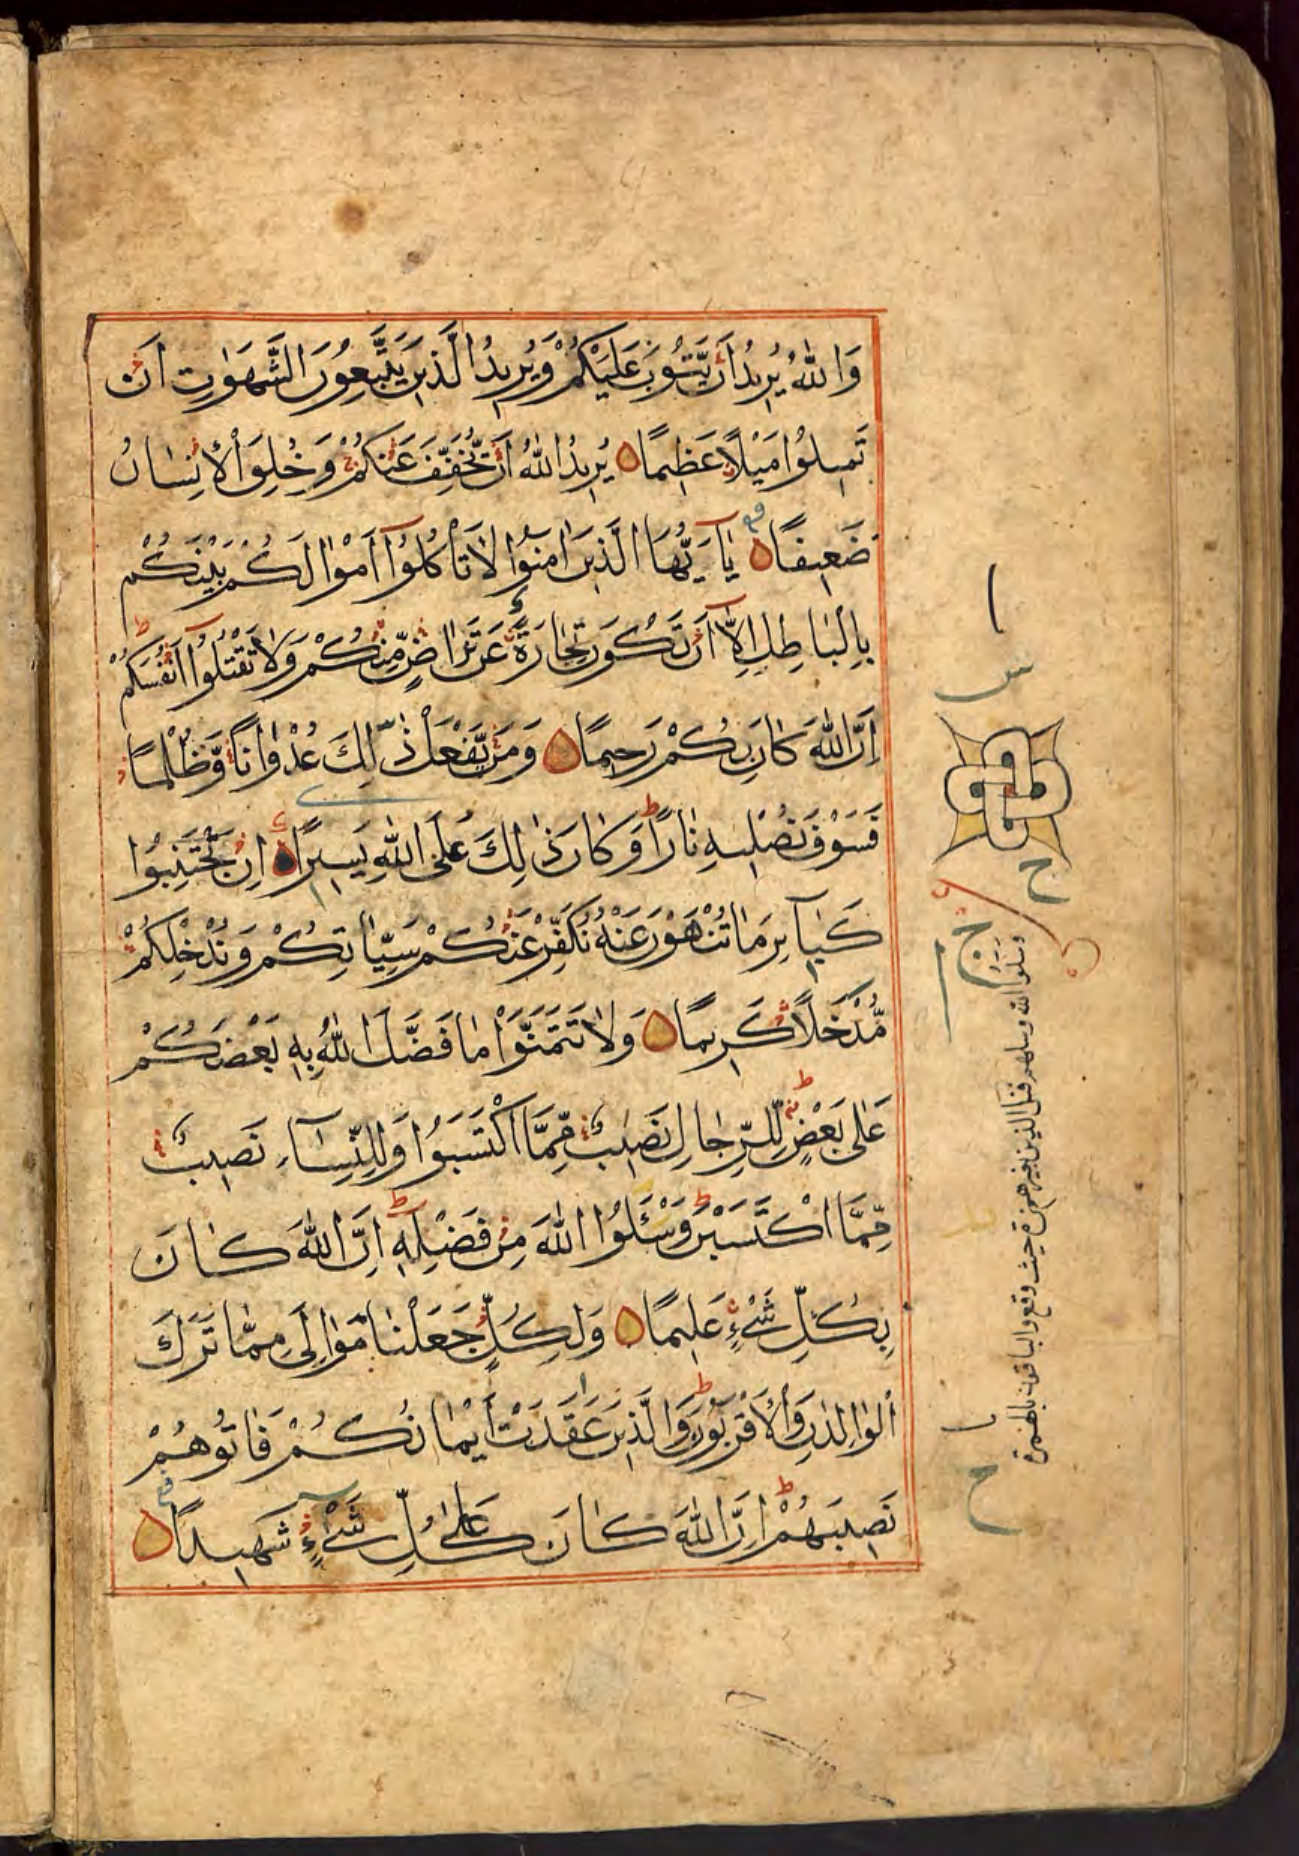 وَاللّٰهُ يُرِيدُ اَنْ يَّتُوبَ عَلَيْكُمْ وَيُرِيدُ الَّذِينَ يَتَّبِعُونَ الشَّهَوٰتِ اَنْ
تَمِيلُوْا مَيْلًا عَظِيمًا ه يُرِيدُ اللّٰهُ اَنْ يُّخَفِّفَ عَنْكُمْ وَخُلِقَ الْاِنْسَانُ
ضَعِيفًا ه يٰاَيُّهَا الَّذِينَ اٰمَنُوا لَا تَأْكُلُوْا اَمْوٰالَكُمْ بَيْنَكُمْ
بِالْبَاطِلِ اِلَّا اَنْ تَكُونَ تِجَارَةً عَنْ تَرَاضٍ مِّنْكُمْ وَلَا تَقْتُلُوْا اَنْفُسَكُمْ
اِنَّ اللّٰهَ كَانَ بِكُمْ رَحِيمًا ه وَمَنْ يَّفْعَلْ ذٰلِكَ عُدْوَانًا وَّظُلْمًا
فَسَوْفَ نُصْلِيهِ نَارًا وَكَانَ ذٰلِكَ عَلَى اللّٰهِ يَسِيرًا ه اِنْ تَجْتَنِبُوْا
كَبَآئِرَ مَا تُنْهَوْنَ عَنْهُ نُكَفِّرْ عَنْكُمْ سَيِّاٰتِكُمْ وَنُدْخِلْكُمْ
مُّدْخَلًا كَرِيمًا ه وَلَا تَتَمَنَّوْا مَا فَضَّلَ اللّٰهُ بِهِ بَعْضَكُمْ
عَلٰى بَعْضٍ لِلرِّجَالِ نَصِيبٌ مِّمَّا اكْتَسَبُوْا وَلِلنِّسَآءِ نَصِيبٌ
مِّمَّا اكْتَسَبْنَ وَسْـَٔلُوا اللّٰهَ مِنْ فَضْلِهِ اِنَّ اللّٰهَ كَانَ
بِكُلِّ شَيْءٍ عَلِيمًا ه وَلِكُلٍّ جَعَلْنَا مَوَالِيَ مِمَّا تَرَكَ
الْوَالِدٰنِ وَالْاَقْرَبُونَ وَالَّذِينَ عَقَدَتْ اَيْمَانُكُمْ فَاٰتُوهُمْ
نَصِيبَهُمْ اِنَّ اللّٰهَ كَانَ عَلٰى كُلِّ شَيْءٍ شَهِيدًا ه
وسلوا الله وسلهم فسل الذين بغير همزة حيث وقع والباقون بالهمزة